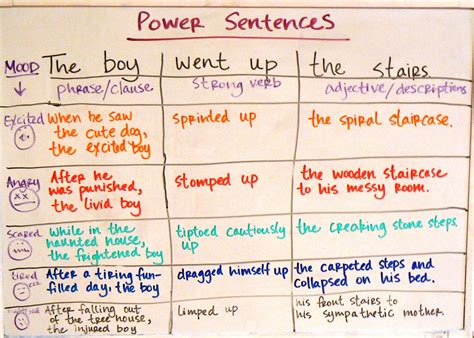 Power Sentences
MOOD The boy went up the stairs
phrase/clause strong verb adjective/descriptions
Excited When he saw sprinted up the spiral staircase.
the cute dog,
the excited boy
Angry After he stomped up the wooden staircase
was punished, to his messy room.
the livid boy
Scared While in the tiptoed cautiously the creaking stone steps
haunted house, up
the frightened boy
tired After a tiring fun- dragged himself up the carpeted steps and
filled day, the boy collapsed on his bed.
After falling out limped up his front stairs to
of the tree house, his sympathetic mother.
the injured boy